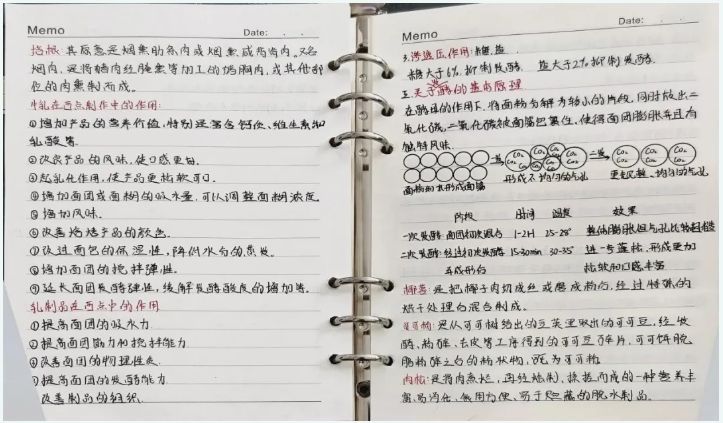 Memo
Date:
培根：其原意是烟熏肋条肉或烟熏咸背脊肉。又名
烟肉，是将猪肉经腌熏等加工的猪胸肉，或其他部
位的肉熏制而成。
牛乳在西点制作中的作用：
①增加产品的营养价值，特别是富含钙质、维生素和
乳酸等。
②改良产品的风味，使口感更佳。
③起乳化作用，使产品更松软可口。
④增加面团或面糊的吸水量，可以调整面糊浓度
⑤增加风味。
⑥改善烘焙产品的颜色。
⑦改进面包的保湿性，降低水分的蒸发。
⑧增加面团的搅拌弹性。
⑨延长面团发酵弹性，缓解发酵酸度的增加等。
乳制品在西点中的作用
①提高面团的吸水力
②提高面团筋力和搅拌能力
③改善面团的物理性质
④提高面团的发酵能力
改善制品的组织
Memo
Date:
3.渗透压作用：糖、盐
糖大于6%抑制发酵。 盐大于2%抑制发酵。
五、关于酵的基本原理
在酵母的作用下，将面粉分解为较小的片段，同时放出二
氧化碳，二氧化碳被面筋包裹住，使得面团膨胀并且有
独特风味。
CO₂ CO₂ CO₂ CO₂ CO₂ CO₂
一发
二发
面粉和水形成面筋 形成不均匀的气孔 更包裹、均匀的气孔
阶段 时间 温度 效果
一次发酵：面团初次混合 1-2H 25-28° 整体膨胀但气孔比较粗糙
二次发酵：经过初次发酵 15-30min 30-35° 进一步蓬松，形成更加
并成形的 松软和口感丰富
椰蓉：是把椰子肉切成丝或磨成粉后，经过特殊的
烘干处理后混合制成。
可可粉：是从可可树结出的豆荚里取出的可可豆，经发
酵、粗碎、去皮等工序得到的可可豆碎片，可可饼脱
脂粉碎之后的粉状物，既为可可粉
肉松：是将肉煮烂，再经炒制、揉搓而成的一种营养丰
富、易消化、食用方便、易于贮藏的脱水制品。